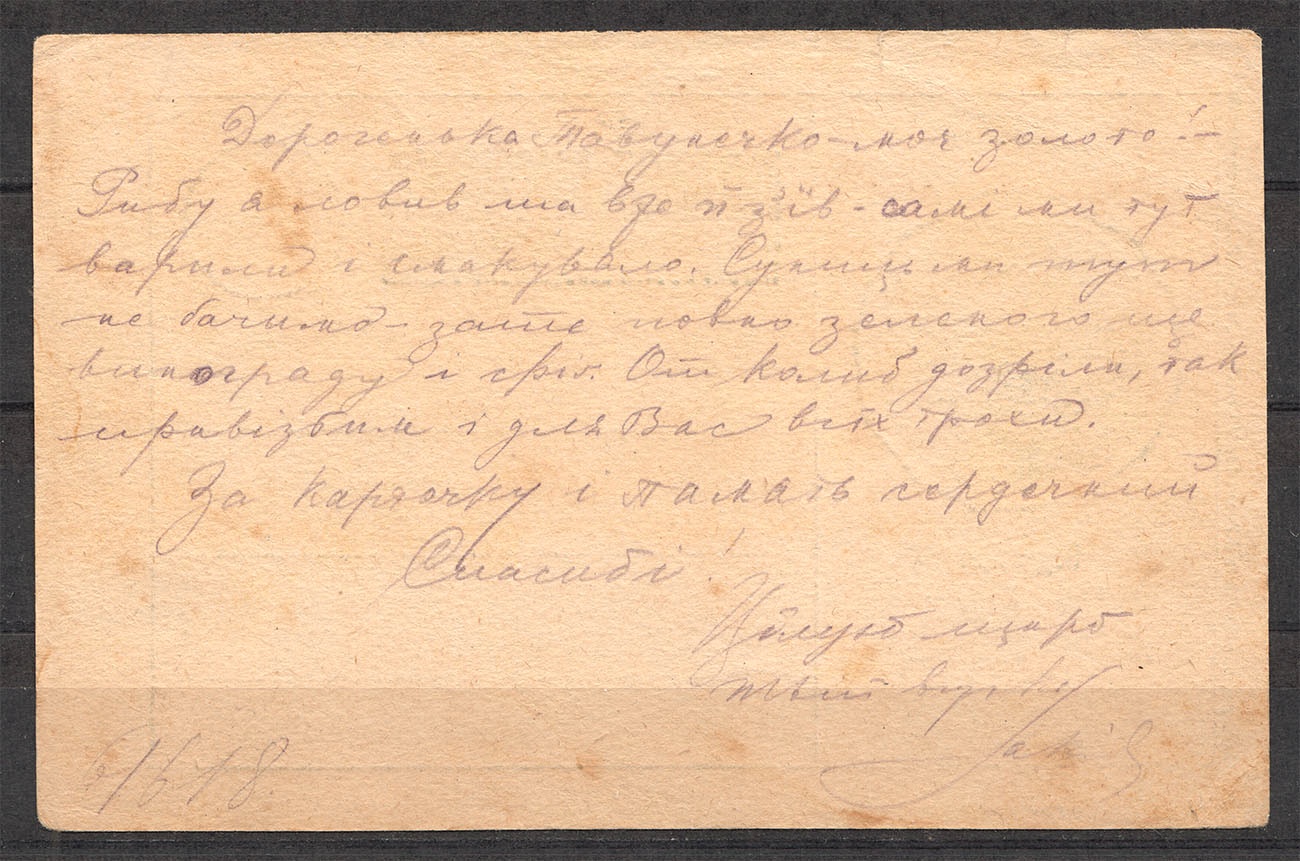 Дорогенька Павунечко - моє золото! -
Рибу я ловив та вже й з'їв - самі ми тут
варили і смакувало. Суниць ми тут
не бачимо - зате повно зеленого ще
винограду і фіг. От колиб дозріли, так
привізбим і для Вас всіх трохи.
За карточку і память сердечний
Спасибі!
Цілую щиро
твій
6/6 18.